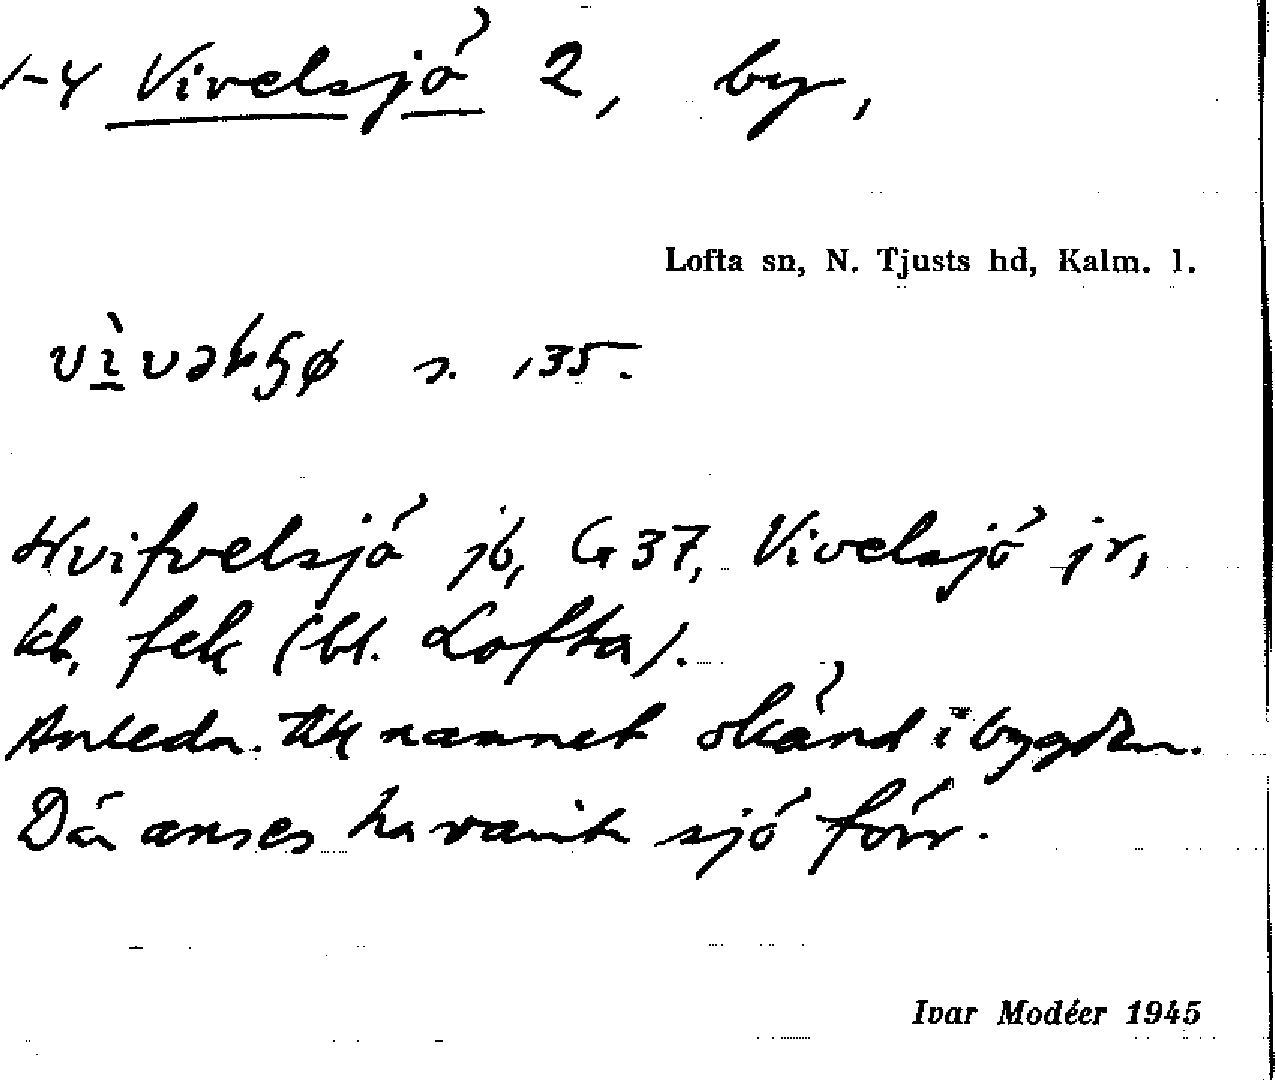 1-4 Vivelsjö 2, by,
Lofta sn, N. Tjusts hd, Kalm. l.
s. 135.
Hvifvelsjö jb, G 37, Vivelsjö jr,
kb, fek (bl. Lofta).
Anledn. till namnet okänd i bygden.
Där anses ha varit sjö förr.
Ivar Modéer 1945